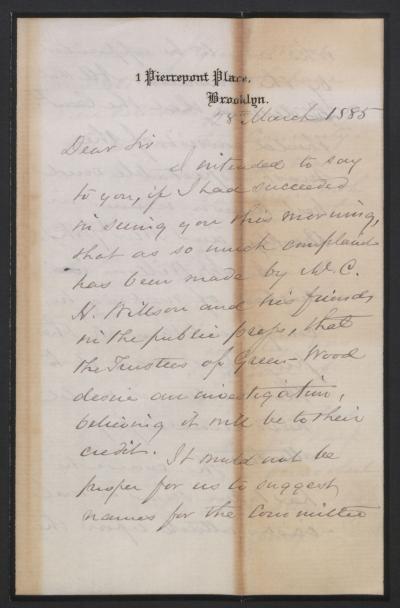 1 Pierrepont Place,
Brooklyn.
28th March 1885
Dear Sir
I intended to say
to you, if I had succeeded
in seeing you this morning,
that as so much complaint
has been made by W. C.
H. Willson and his friends
in the public press, that
the Trustees of Green-Wood
desire an investigation,
believing it will be to their
credit. It would not be
proper for us to suggest
names for the Committee